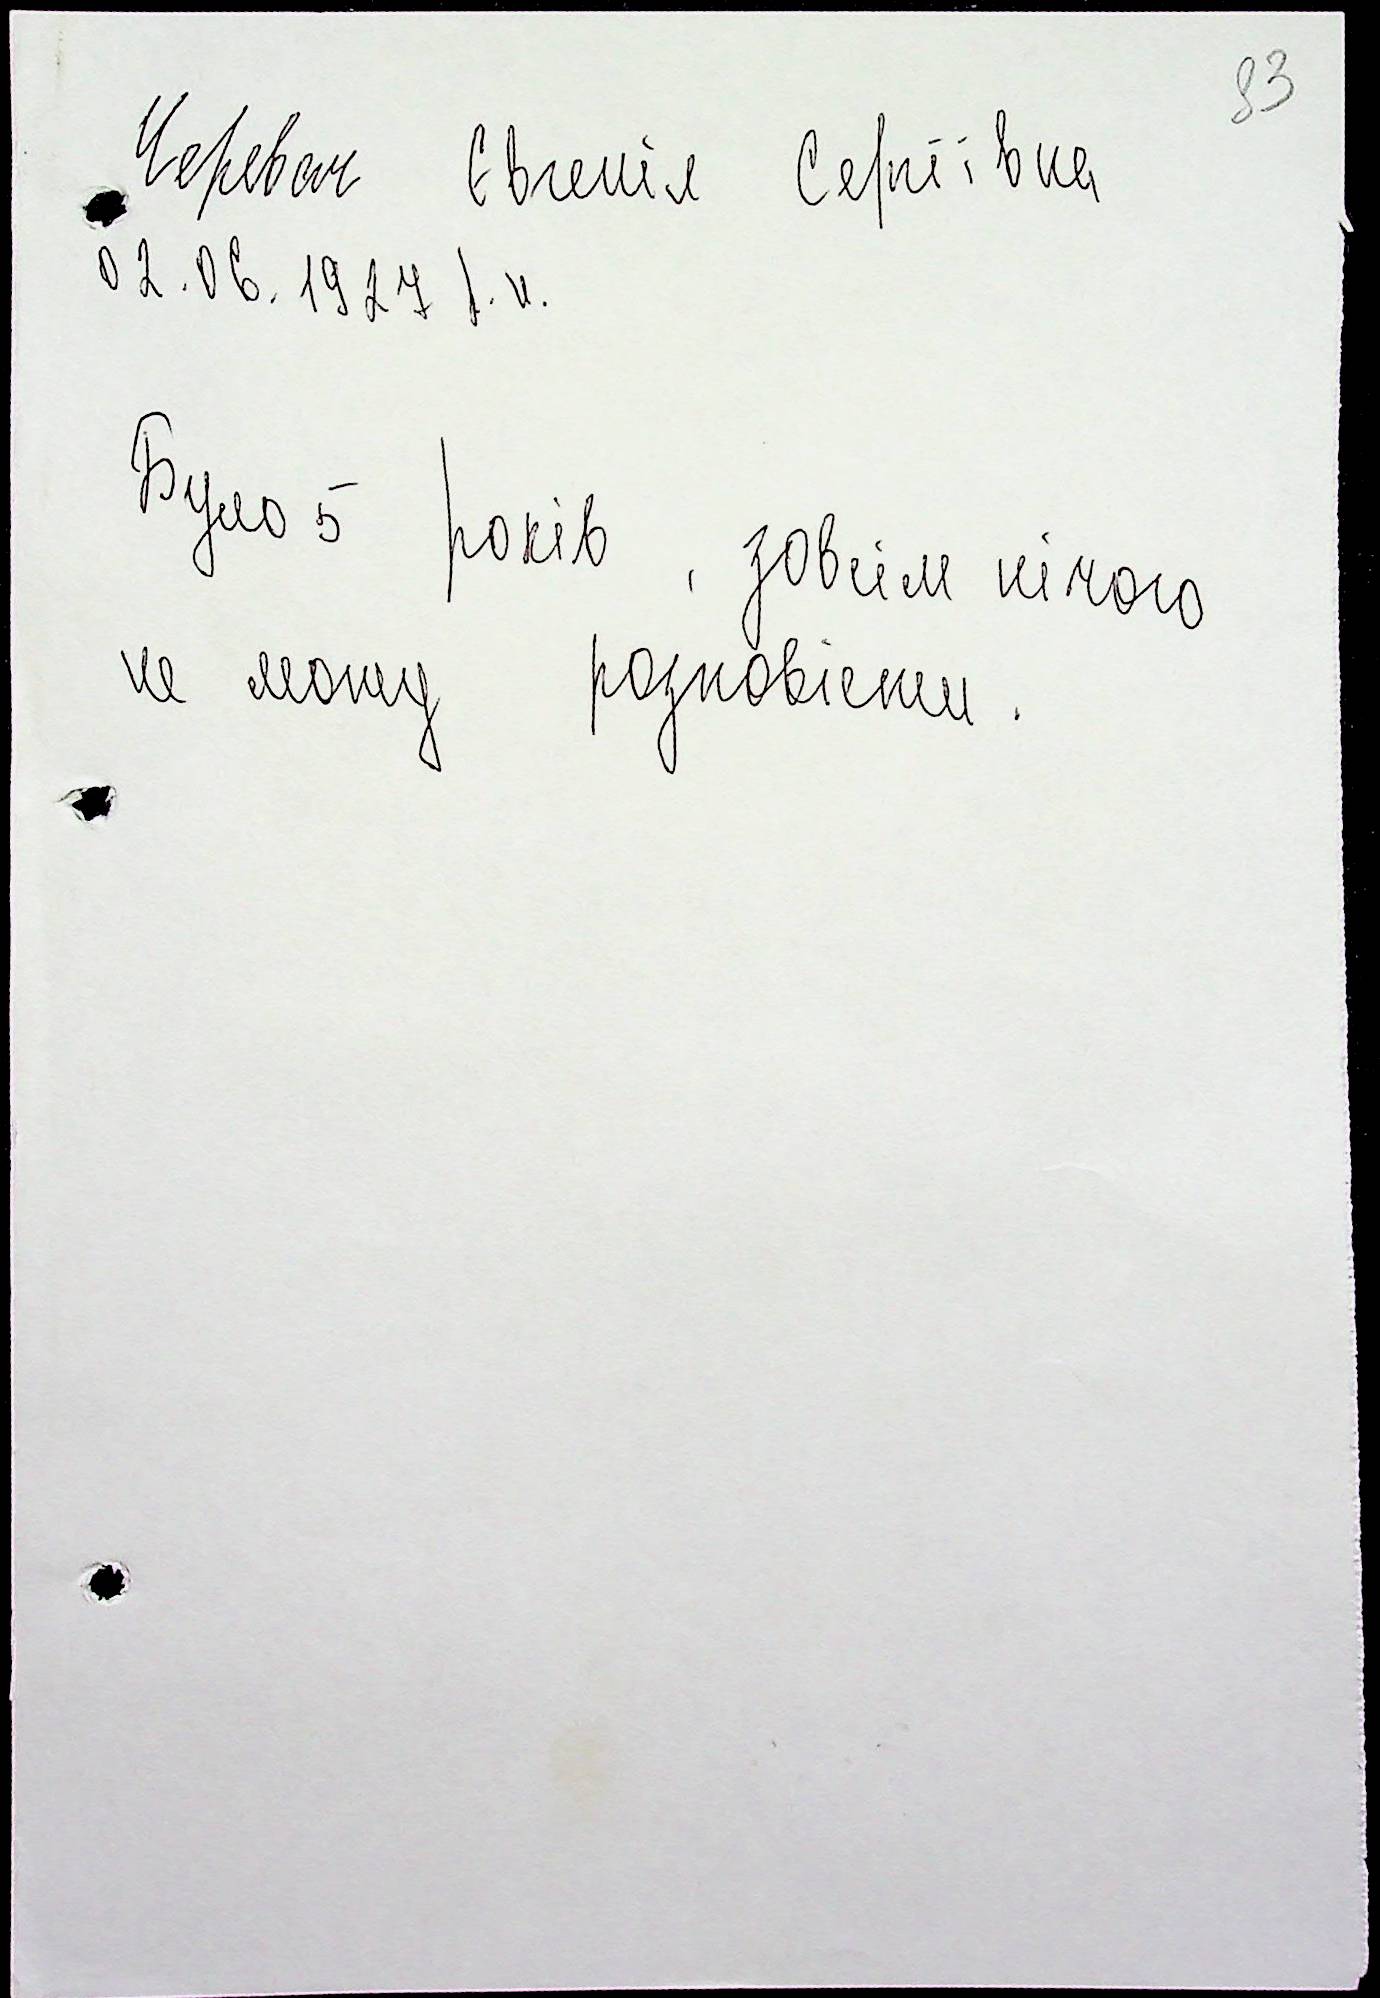 83
Черевач Євгенія Сергіївна
02.06.1927 р.н.
Було 5 років, зовсім нічого
не можу розповісти.